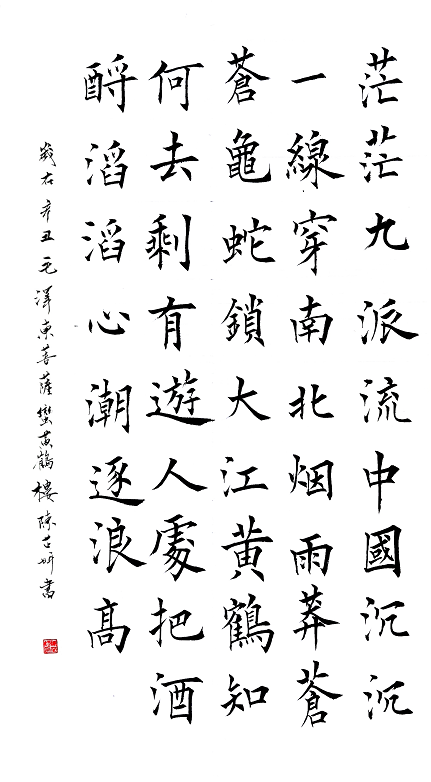 茫茫九派流中國沉沉
一線穿南北烟雨莽蒼
蒼龜蛇鎖大江黃鶴知
何去剩有遊人處把酒
酹滔滔心潮逐浪高
歲在辛丑毛澤東菩薩蠻黃鶴樓陳書